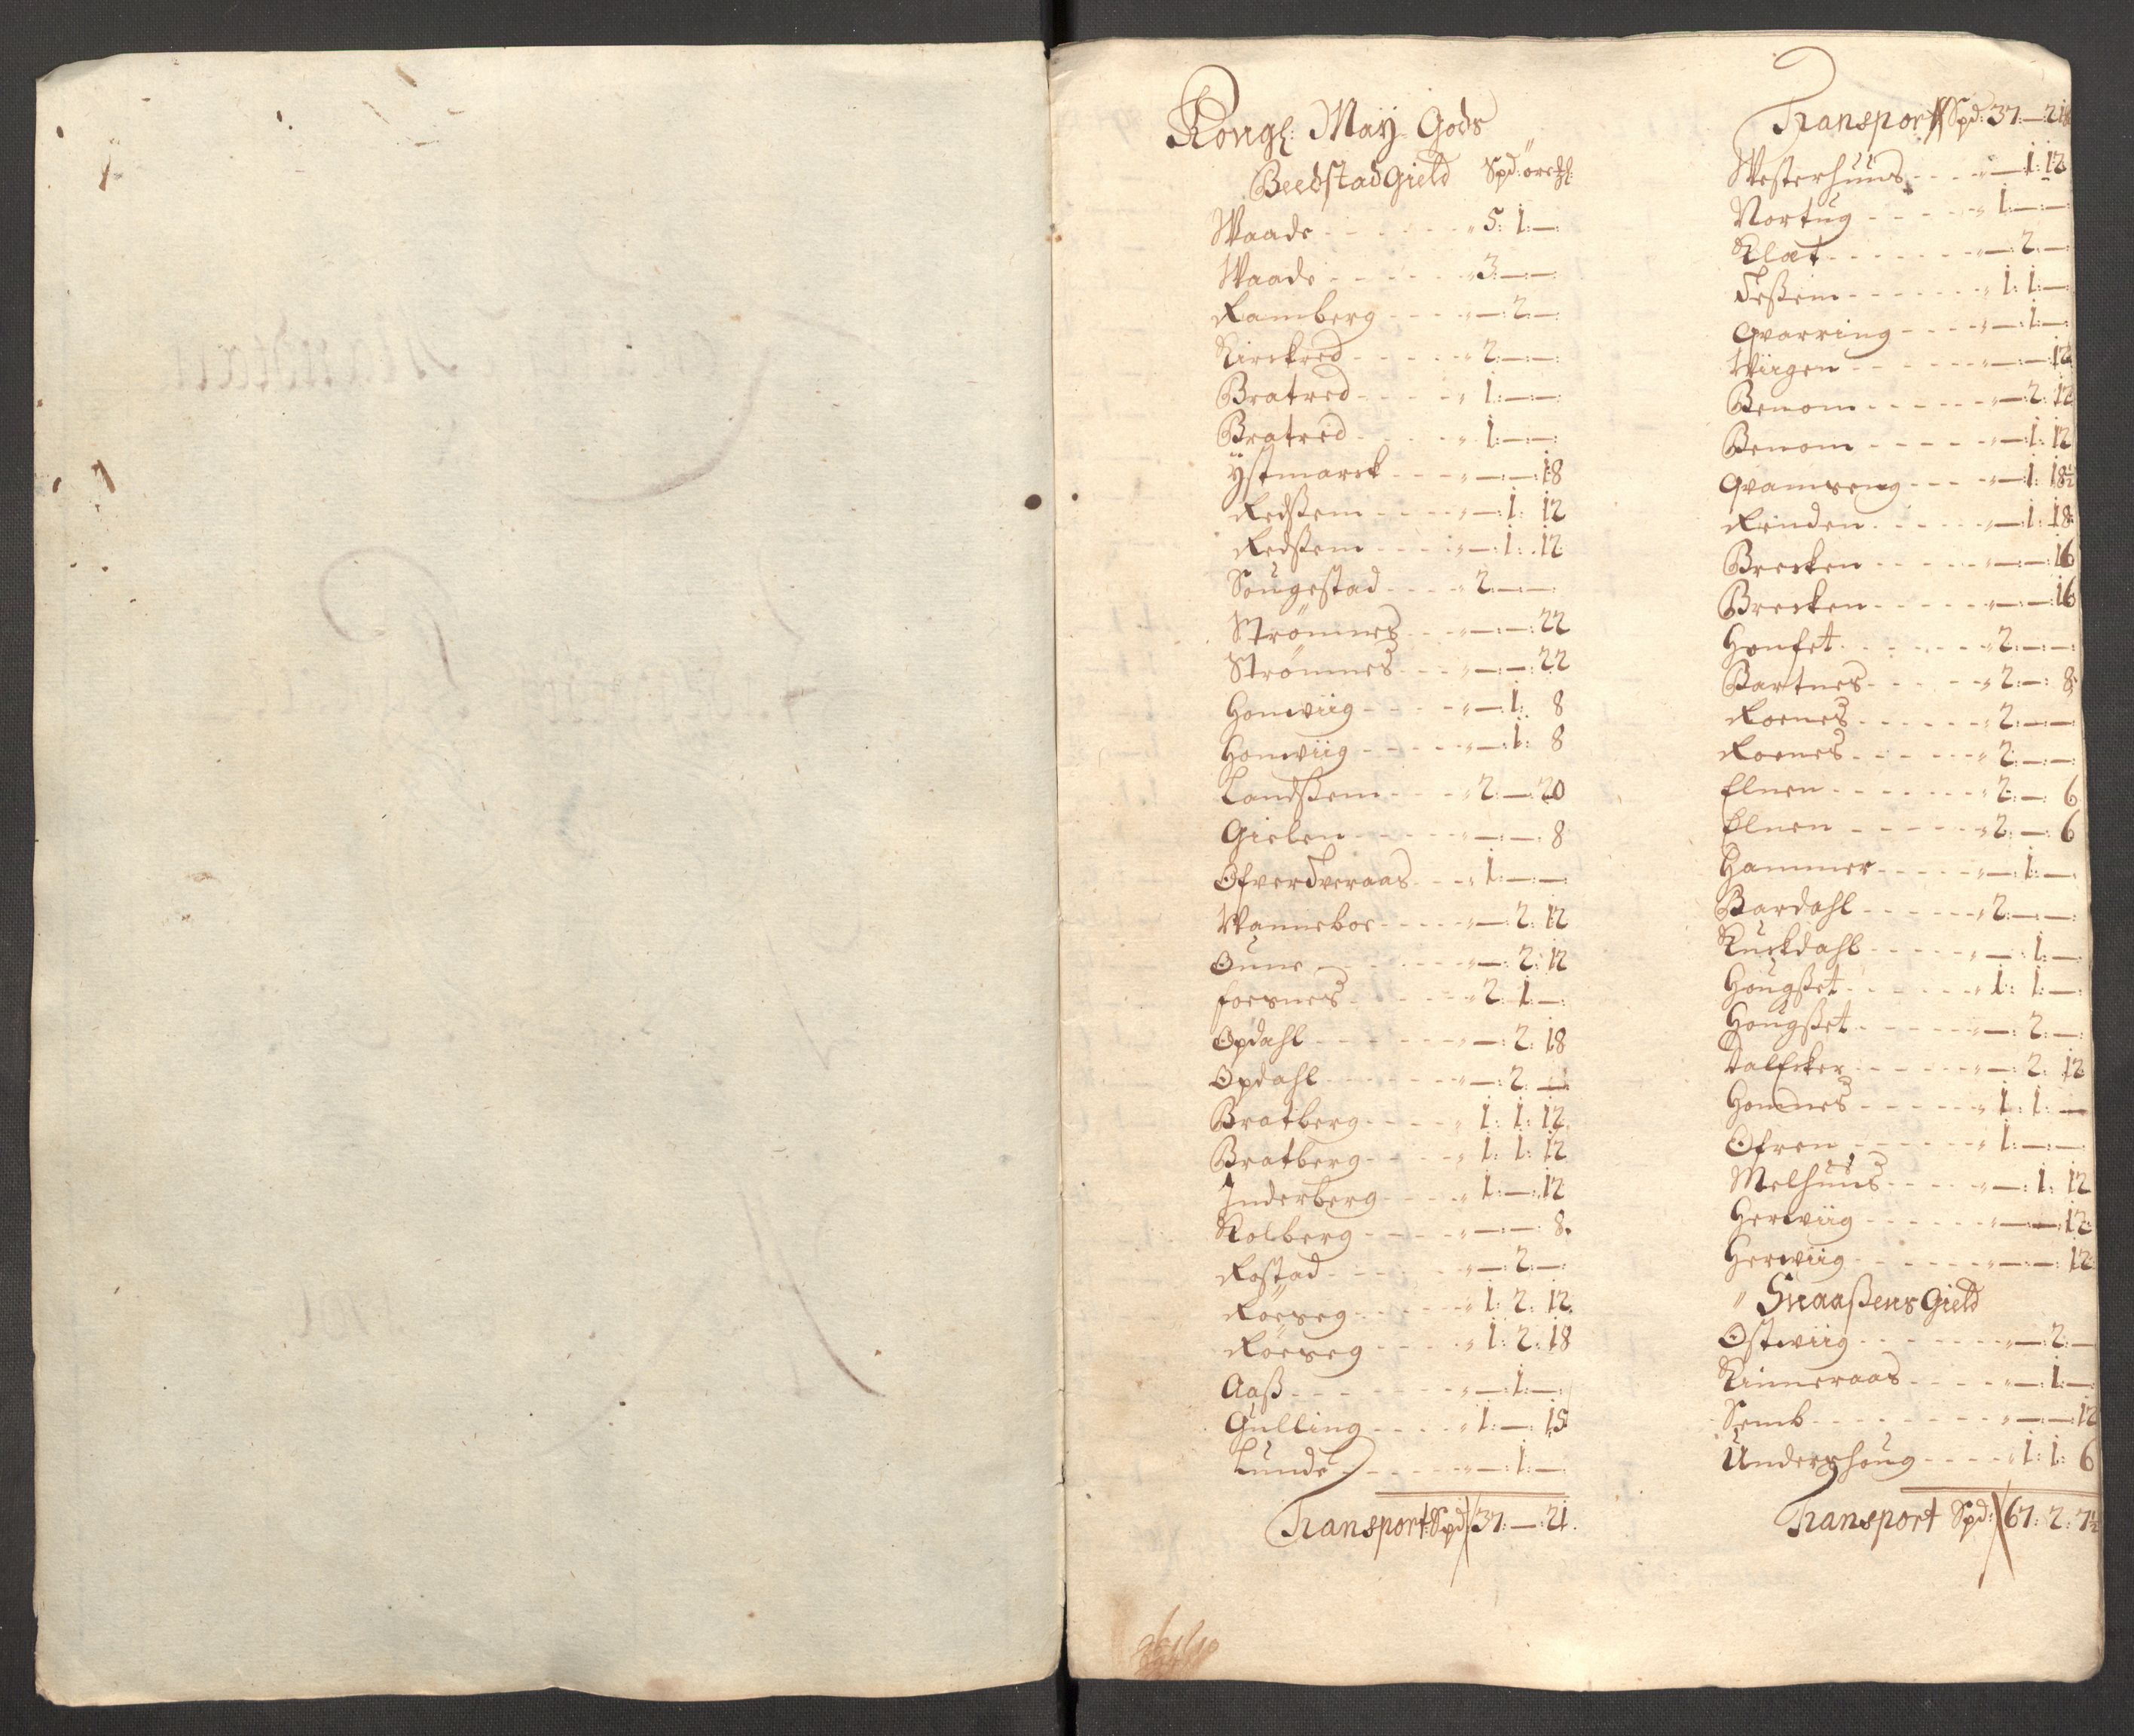 Kongl: May Gods
Beedstad Gield Spd: öre ſl:
Waade - - - - - - - 5: 1: —
Waade - - - - - - - 3: — : —
Ramberg - - - - — : 2: —
Kirckred - - - - - 2: — : —
Bratred - - - - - 1: — : —
Bratred - - - - - 1: — : —
ÿstmarck - - - - — : — : 18
Redßem - - - - — : 1: 12
Redßem - - - - — : 1: 12
Sougestad - - - - 2: — : —
Strömnes - - - — : — : 22
Strömnes - - - — : — : 22
Homviig - - - - — : 1: 8
Homviig - - - - — : 1: 8
Landßem - - - - 2: — : 20
Gielen - - - - - — : — : 8
Ofverdveraas - - - 1: — : —
Wanneboe - - - - — : 2: 12
Oune - - - - - - — : 2: 12
foesnes - - - - - 2: 1: —
Opdahl - - - - - - — : 2: 18
Opdahl - - - - - - — : 2: —
Bratberg - - - - 1: 1: 12
Bratberg - - - - 1: 1: 12
Inderberg - - - - 1: — : 12
Kolberg - - - - — : — : 8
Rostad - - - - - — : 2: —
Röeseg - - - - - 1: 2: 12
Röeseg - - - - - 1: 2: 18
Aaß - - - - - - — : 1: —
Gulling - - - - 1: — : 15
Lunde - - - - - — : 1: —
Transport Spd: 37: — : 21
Transport Spd: 37: — : 21
Westerhuus - - - - — : 1: 12
Nortug - - - - - 1: — : —
Klæt - - - - - - — : 2: —
Feßem - - - - - - 1: 1: —
Qvarring - - - - — : 1: —
Wiigen - - - - - — : — : 12
Benom - - - - - — : 2: 12
Benom - - - - - — : 1: 12
Qvamseng - - - - — : 1: 18½
Reinden - - - - - — : 1: 18
Brecken - - - - - — : — : 16
Brecken - - - - - — : — : 16
Honset - - - - - - 2: — : —
Bartnes - - - - - 2: — : 8
Roenes - - - - - - 2: — : —
Roenes - - - - - - 2: — : —
Elnen - - - - - - 2: — : 6
Elnen - - - - - - 2: — : 6
Hammer - - - - - — : 1: —
Bardahl - - - - - 2: — : —
Kuckdahl - - - - - — : 1: —
Hougßet - - - - - 1: 1: —
Hougßet - - - - - — : 2: —
Dalecker - - - - - — : 2: 12
Homnes - - - - - 1: 1: —
Ofren - - - - - - 1: — : —
Melhuus - - - - - — : 1: 12
Herviig - - - - - — : — : 12
Herviig - - - - - — : — : 12
Snaaßens Gield
Ostviig - - - - - - — : 2: —
Kinneraas - - - - — : 1: —
Semb - - - - - - — : — : 12
Undershoug - - - - 1: 1: 6
Transport Spd: 67: 2: 7½